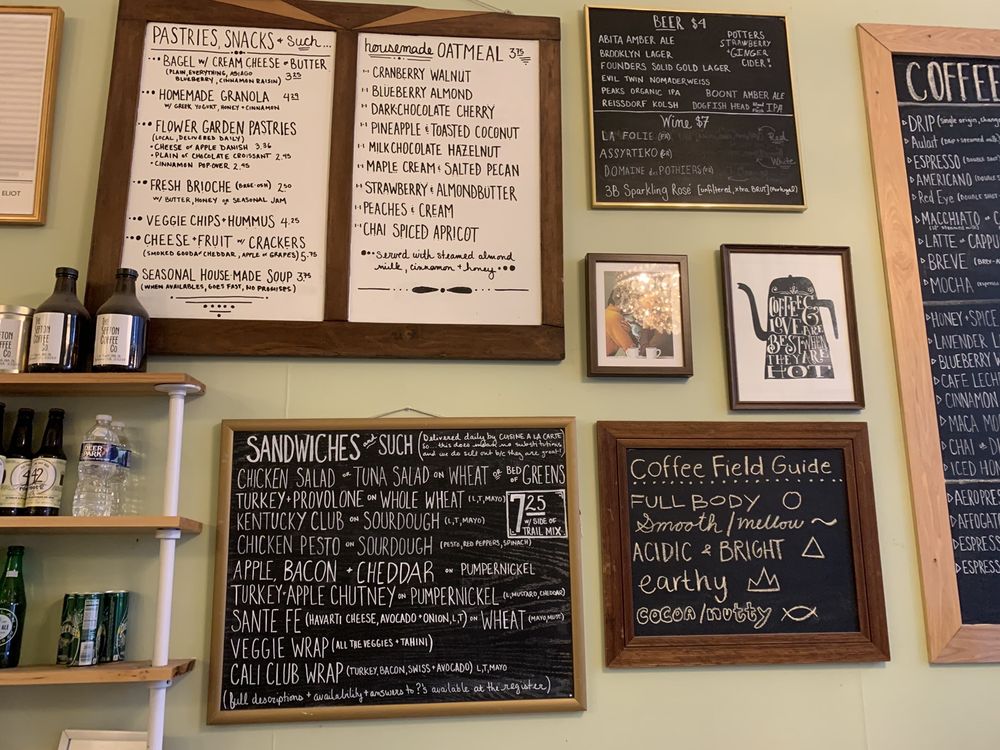 ELIOT
PASTRIES, SNACKS + such...
BAGEL W/ CREAM CHEESE or BUTTER
(PLAIN, EVERYTHING, ASIAGO
BLUEBERRY, CINNAMON RAISIN) 3.25
HOMEMADE GRANOLA 4.29
W/ GREEK YOGURT, HONEY + CINNAMON
FLOWER GARDEN PASTRIES
(LOCAL, DELIVERED DAILY)
• CHEESE or APPLE DANISH 3.36
• PLAIN or CHOCOLATE CROISSANT 2.95
• CINNAMON POP-OVER 2.95
FRESH BRIOCHE (BREE-OSH) 2.50
W/ BUTTER, HONEY or SEASONAL JAM
VEGGIE CHIPS + HUMMUS 4.25
CHEESE + FRUIT w/ CRACKERS
(SMOKED GOUDA or CHEDDAR, APPLE or GRAPES) 5.75
SEASONAL HOUSE-MADE SOUP 3.75
(WHEN AVAILABLE, GOES FAST, NO PROMISES)
housemade OATMEAL 3.75
CRANBERRY WALNUT
BLUEBERRY ALMOND
DARKCHOCOLATE CHERRY
PINEAPPLE & TOASTED COCONUT
MILKCHOCOLATE HAZELNUT
MAPLE CREAM & SALTED PECAN
STRAWBERRY & ALMONDBUTTER
PEACHES & CREAM
CHAI SPICED APRICOT
served with steamed almond
milk, cinnamon + honey
BEER $4
ABITA AMBER ALE
BROOKLYN LAGER
FOUNDERS SOLID GOLD LAGER
EVIL TWIN NOMADERWEISS
PEAKS ORGANIC IPA
REISSDORF KOLSH
POTTERS
STRAWBERRY
+ GINGER
CIDER!
BOONT AMBER ALE
DOGFISH HEAD IPA
Wine $7
LA FOLIE (FR) Red
ASSYRTIKO White
DOMAINE des POTHIERS (FR)
3B Sparkling Rosé [unfiltered, xtra BRUT] (Portugal)
COFFEE
& LOVE ARE
BEST WHEN
THEY ARE
HOT
SANDWICHES and SUCH
(Delivered daily by CUISINE A LA CARTE
So... this does mean no substitutions
and we do sell out b/c they are great!)
CHICKEN SALAD or TUNA SALAD on WHEAT or BED of GREENS
TURKEY + PROVOLONE on WHOLE WHEAT (L,T,MAYO)
KENTUCKY CLUB on SOURDOUGH (L,T,MAYO)
7.25
W/ SIDE OF
TRAIL MIX
CHICKEN PESTO on SOURDOUGH (PESTO, RED PEPPERS, SPINACH)
APPLE, BACON + CHEDDAR on PUMPERNICKEL
TURKEY-APPLE CHUTNEY on PUMPERNICKEL (L, MUSTARD, CHEDDAR)
SANTE FE (HAVARTI CHEESE, AVOCADO + ONION, L,T) on WHEAT (MAYO, MUST)
VEGGIE WRAP (ALL THE VEGGIES + TAHINI)
CALI CLUB WRAP (TURKEY, BACON, SWISS + AVOCADO) L,T,MAYO
(full descriptions + availability + answers to ?'s available at the register)
Coffee Field Guide
FULL BODY
Smooth / mellow
ACIDIC & BRIGHT
earthy
cocoa / nutty
COFFEE
DRIP (single origin, chang
Aulait
ESPRESSO (DOUBLE S
AMERICANO (DOUBLE S
Red Eye (DOUBLE SHOT
MACCHIATO or C
LATTE or CAPPU
BREVE
MOCHA
HONEY + SPICE
LAVENDER L
BLUEBERRY W
CAFE LECH
CINNAMON
MACA MO
CHAI or D
ICED HON
AEROPRE
AFFOGAT
ESPRESS
ESPRESS
COFFEE
CO.
COFFEE
CO.
DEER
PARK